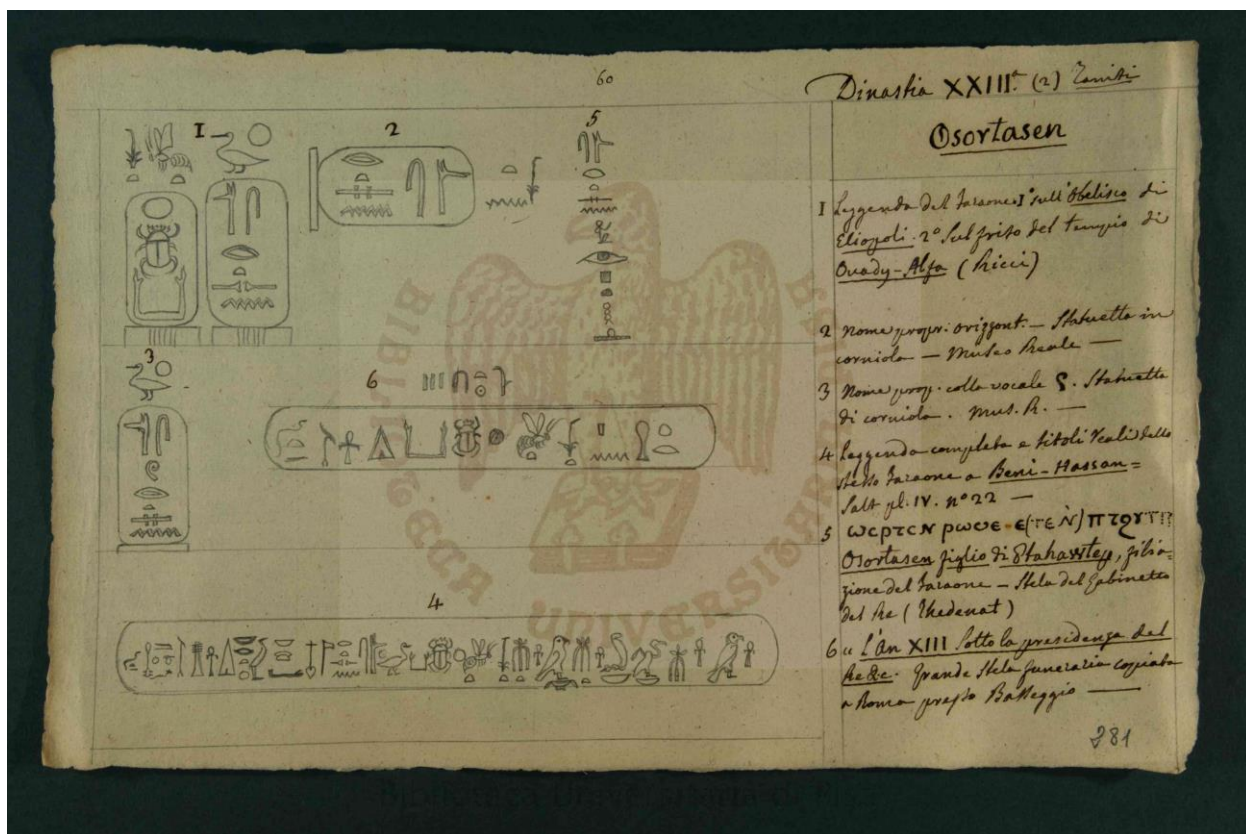 60
Dinastia XXIII.ª (2) Taniti
Osortasen
1
2
5
3
6
4
1 Leggenda del Faraone. 1º sull'Obelisco di
Eliopoli. 2º Sul friso del tempio di
Ouady-Alfa (Ricci)
2 Nome propr. orizzont. — Statuetta in
corniola — Museo Reale —
3 Nome prop. colla vocale Statuetta
di corniola. Mus. R. —
4 Leggenda completa e titoli reali dello
stesso Faraone a Beni-Hassan =
Salt pl. IV. nº 22 —
5
Osortasen figlio di filia-
zione del Faraone — Stela del Gabinetto
del Re (Thedenat)
6 « L'An XIII sotto la presidenza del
Re &c. Grande Stela funeraria copiata
a Roma presso Basseggio —
281
BIBLIOTECA UNIVERSITARIA
Biblioteca Universitaria di